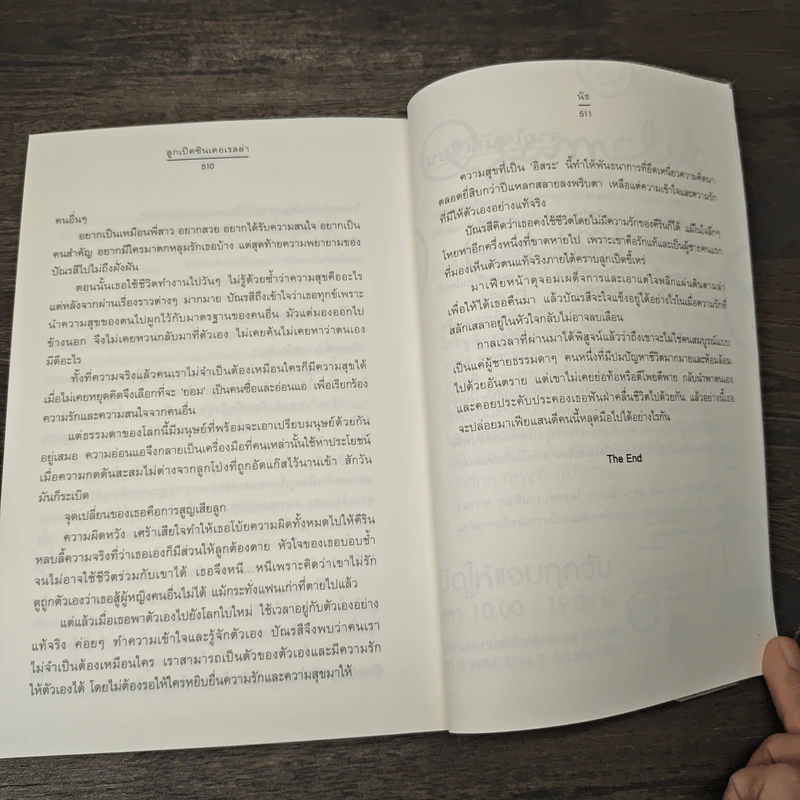 ลูกเป็ดซินเดอเรลล่า
510
คนอื่นๆ
อยากเป็นเหมือนพี่สาว อยากสวย อยากได้รับความสนใจ อยากเป็น
คนสำคัญ อยากมีใครมาตกหลุมรักเธอบ้าง แต่สุดท้ายความพยายามของ
ปัณรสีไปไม่ถึงฝั่งฝัน
ตอนนั้นเธอใช้ชีวิตทำงานไปวันๆ ไม่รู้ด้วยซ้ำว่าความสุขคืออะไร
แต่หลังจากผ่านเรื่องราวต่างๆ มากมาย ปัณรสีถึงเข้าใจว่าเธอทุกข์เพราะ
นำความสุขของตนไปผูกไว้กับมาตรฐานของคนอื่น มัวแต่มองออกไป
ข้างนอก จึงไม่เคยหวนกลับมาที่ตัวเอง ไม่เคยค้นไม่เคยหาว่าตนเอง
มีดีอะไร
ทั้งที่ความจริงแล้วคนเราไม่จำเป็นต้องเหมือนใครก็มีความสุขได้
เมื่อไม่เคยหยุดคิดจึงเลือกที่จะ 'ยอม' เป็นคนซื่อและอ่อนแอ เพื่อเรียกร้อง
ความรักและความสนใจจากคนอื่น
แต่ธรรมดาของโลกนี้มีมนุษย์ที่พร้อมจะเอาเปรียบมนุษย์ด้วยกัน
อยู่เสมอ ความอ่อนแอจึงกลายเป็นเครื่องมือที่คนเหล่านั้นใช้หาประโยชน์
เมื่อความกดดันสะสมไม่ต่างจากลูกโป่งที่ถูกอัดแก๊สไว้นานเข้า สักวัน
มันก็ระเบิด
จุดเปลี่ยนของเธอคือการสูญเสียลูก
ความผิดหวัง เศร้าเสียใจทำให้เธอโบ้ยความผิดทั้งหมดไปให้คีริน
หลบลี้ความจริงที่ว่าเธอเองก็มีส่วนให้ลูกต้องตาย หัวใจของเธอบอบช้ำ
จนไม่อาจใช้ชีวิตร่วมกับเขาได้ เธอจึงหนี...หนีเพราะคิดว่าเขาไม่รัก
ดูถูกตัวเองว่าเธอสู้ผู้หญิงคนอื่นไม่ได้ แม้กระทั่งแฟนเก่าที่ตายไปแล้ว
แต่แล้วเมื่อเธอพาตัวเองไปยังโลกใบใหม่ ใช้เวลาอยู่กับตัวเองอย่าง
แท้จริง ค่อยๆ ทำความเข้าใจและรู้จักตัวเอง ปัณรสีจึงพบว่าคนเรา
ไม่จำเป็นต้องเหมือนใคร เราสามารถเป็นตัวของตัวเองและมีความรัก
ให้ตัวเองได้ โดยไม่ต้องรอให้ใครหยิบยื่นความรักและความสุขมาให้
นัธ
511
ความสุขที่เป็น 'อิสระ' นี้ทำให้พันธนาการที่ยึดเหนี่ยวความคิดมา
ตลอดยี่สิบกว่าปีแหลกสลายลงพริบตา เหลือแต่ความเข้าใจและความรัก
ที่มีให้ตัวเองอย่างแท้จริง
ปัณรสีคิดว่าเธอคงใช้ชีวิตโดยไม่มีความรักของคีรินก็ได้ แม้ในใจลึกๆ
โหยหาอีกครึ่งหนึ่งที่ขาดหายไป เพราะเขาคือรักแท้และเป็นผู้ชายคนแรก
ที่มองเห็นตัวตนแท้จริงภายใต้คราบลูกเป็ดขี้เหร่
มาเฟียหน้าดุจอมเผด็จการและเอาแต่ใจพลิกแผ่นดินตามล่า
เพื่อให้ได้เธอคืนมา แล้วปัณรสีจะใจแข็งอยู่ได้อย่างไรในเมื่อความรักที่
สลักเสลาอยู่ในหัวใจกลับไม่อาจลบเลือน
กาลเวลาที่ผ่านมาได้พิสูจน์แล้วว่าถึงเขาจะไม่ใช่คนสมบูรณ์แบบ
เป็นแค่ผู้ชายธรรมดาๆ คนหนึ่งที่มีปมปัญหาชีวิตมากมายและห้อมล้อม
ไปด้วยอันตราย แต่เขาไม่เคยย่อท้อหรือตีโพยตีพาย กลับนำพาตนเอง
และคอยประคับประคองเธอพ้นฝ่าคลื่นชีวิตไปด้วยกัน แล้วอย่างนี้เธอ
จะปล่อยมาเฟียแสนดีคนนี้หลุดมือไปได้อย่างไรกัน
The End